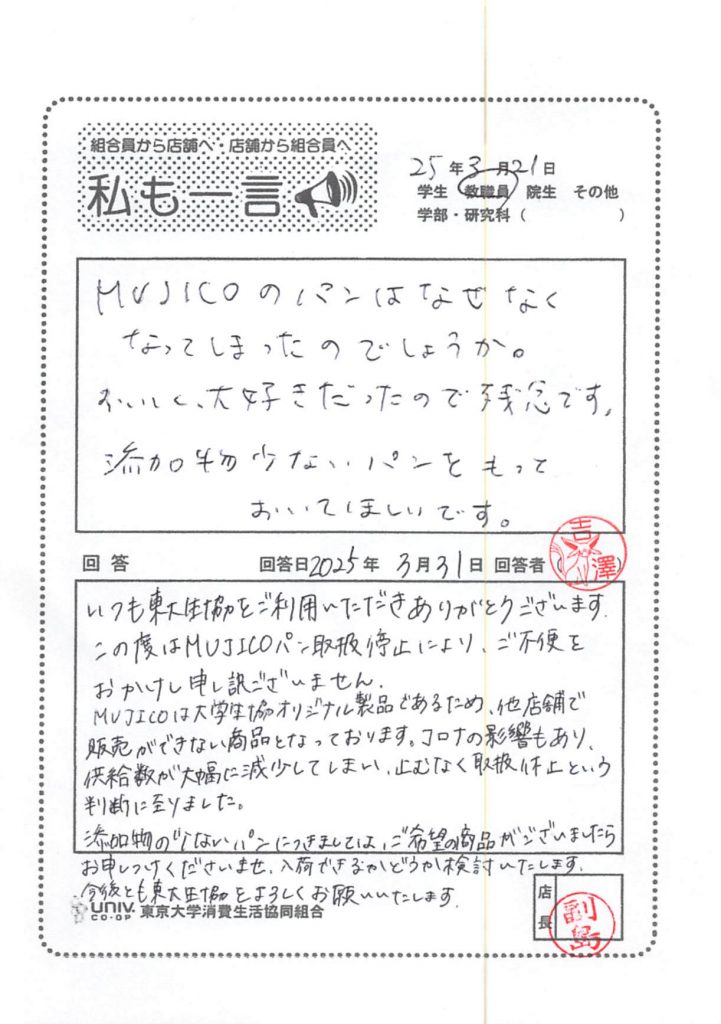 組合員から店舗へ・店舗から組合員へ
私も一言
25年3月21日
学生 教職員 院生 その他
学部・研究科( )
MUJICOのパンはなぜなく
なってしまったのでしょうか。
おいしく、大好きだったので残念です。
添加物少ないパンをもって
おいてほしいです。
回答 回答日2025年 3月31日 回答者( 吉澤 )
いつも東大生協をご利用いただきありがとうございます。
この度はMUJICOパン取扱停止により、ご不便を
おかけし申し訳ございません。
MUJICOは大学生協オリジナル製品であるため、他店舗で
販売ができない商品となっております。コロナの影響もあり、
供給数が大幅に減少してしまい、止むなく取扱休止という
判断に至りました。
添加物の少ないパンにつきましては、ご希望の商品がございましたら
お申しつけくださいませ。入荷できるかどうか検討いたします。
今後とも東大生協をよろしくお願いいたします。
UNIV. CO-OP 東京大学消費生活協同組合
店長 副島